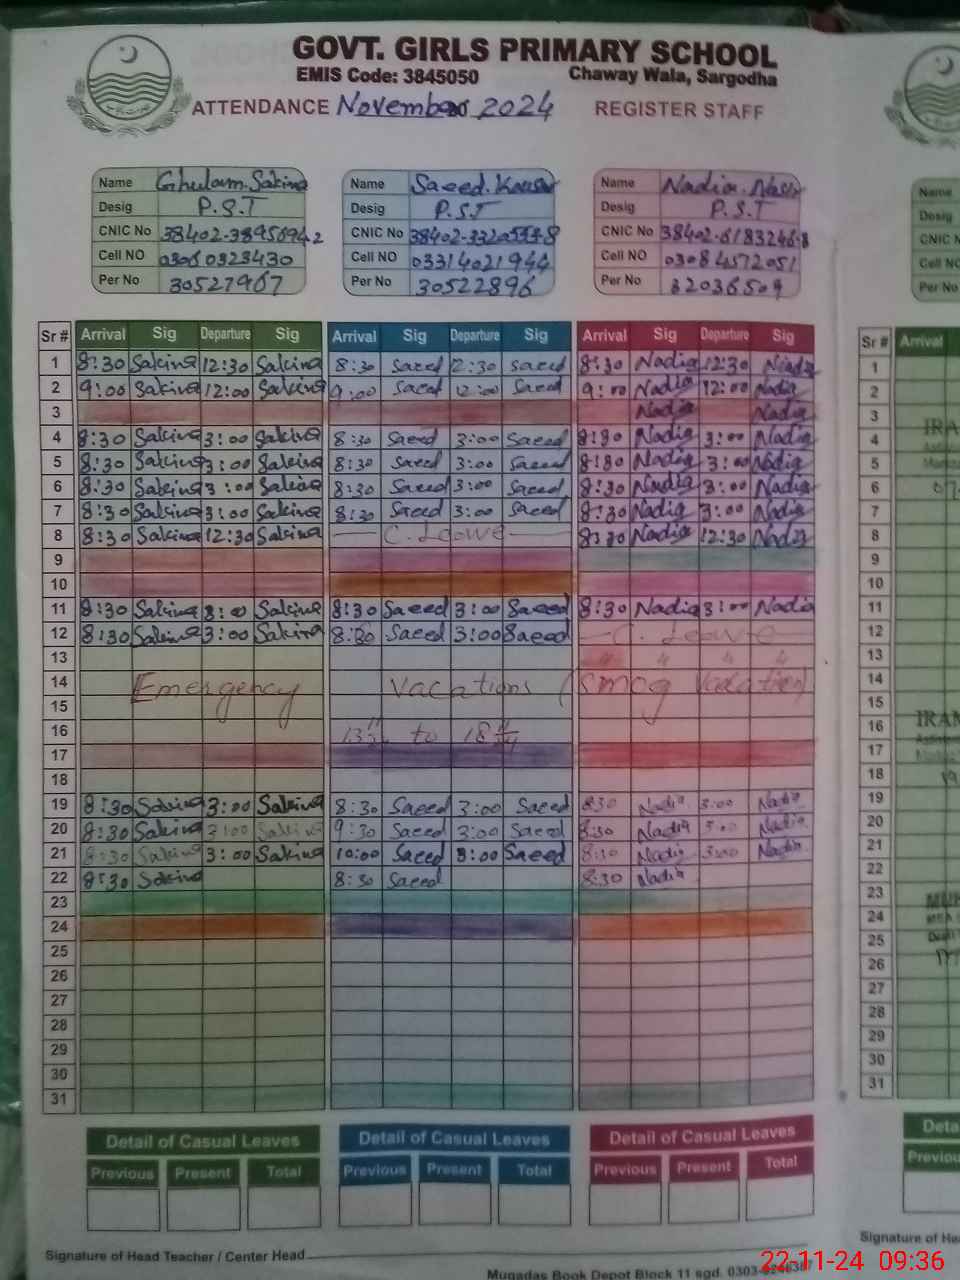 GOVT. GIRLS PRIMARY SCHOOL
EMIS Code: 3845050 Chaway Wala, Sargodha
ATTENDANCE November 2024 REGISTER STAFF
Name Ghulam. Sakina Name Saeed. Kausar Name Nadia. Nasir
Desig P.S.T Desig P.S.T Desig P.S.T
CNIC No CNIC No CNIC No
Cell NO 03060323430 Cell NO 03314021944 Cell NO 03084572051
Per No 30527967 Per No 30522896 Per No 32036509
Sr # Arrival Sig Departure Sig Arrival Sig Departure Sig Arrival Sig Departure Sig
1 8:30 Sakina 12:30 Sakina 8:30 Saeed 12:30 Saeed 8:30 Nadia 12:30 Nadia
2 9:00 Sakina 12:00 Sakina 9:00 Saeed 12:00 Saeed 9:00 Nadia 12:00 Nadia
3 Nadia Nadia
4 8:30 Sakina 3:00 Sakina 8:30 Saeed 3:00 Saeed 8:30 Nadia 3:00 Nadia
5 8:30 Sakina 3:00 Sakina 8:30 Saeed 3:00 Saeed 8:30 Nadia 3:00 Nadia
6 8:30 Sakina 3:00 Sakina 8:30 Saeed 3:00 Saeed 8:30 Nadia 3:00 Nadia
7 8:30 Sakina 3:00 Sakina 8:30 Saeed 3:00 Saeed 8:30 Nadia 3:00 Nadia
8 8:30 Sakina 12:30 Sakina C. Leave 8:30 Nadia 12:30 Nadia
9
10
11 8:30 Sakina 3:00 Sakina 8:30 Saeed 3:00 Saeed 8:30 Nadia 3:00 Nadia
12 8:30 Sakina 3:00 Sakina 8:30 Saeed 3:00 Saeed C. Leave
13 " " " "
14 Emergency vacations (smog vacation)
15
16 to
17
18
19 8:30 Sakina 3:00 Sakina 8:30 Saeed 3:00 Saeed 8:30 Nadia 3:00 Nadia
20 8:30 Sakina 3:00 Sakina 9:30 Saeed 3:00 Saeed 8:30 Nadia 3:00 Nadia
21 8:30 Sakina 3:00 Sakina 10:00 Saeed 3:00 Saeed 8:30 Nadia 3:00 Nadia
22 8:30 Sakina 8:30 Saeed 8:30 Nadia
23
24
25
26
27
28
29
30
31
Detail of Casual Leaves Detail of Casual Leaves Detail of Casual Leaves
Previous Present Total Previous Present Total Previous Present Total
Signature of Head Teacher / Center Head
Muqadas Book Depot Block 11 sgd. 0303-
22-11-24 09:36
Name
Desig
CNIC N
Cell NO
Per No
Sr # Arrival
1
2
3
IRA
4
5
6
7
8
9
10
11
12
13
14
15
IRAN
16
17
18
19
20
21
22
23
24
25
26
27
28
29
30
31
Deta
Previou
Signature of He